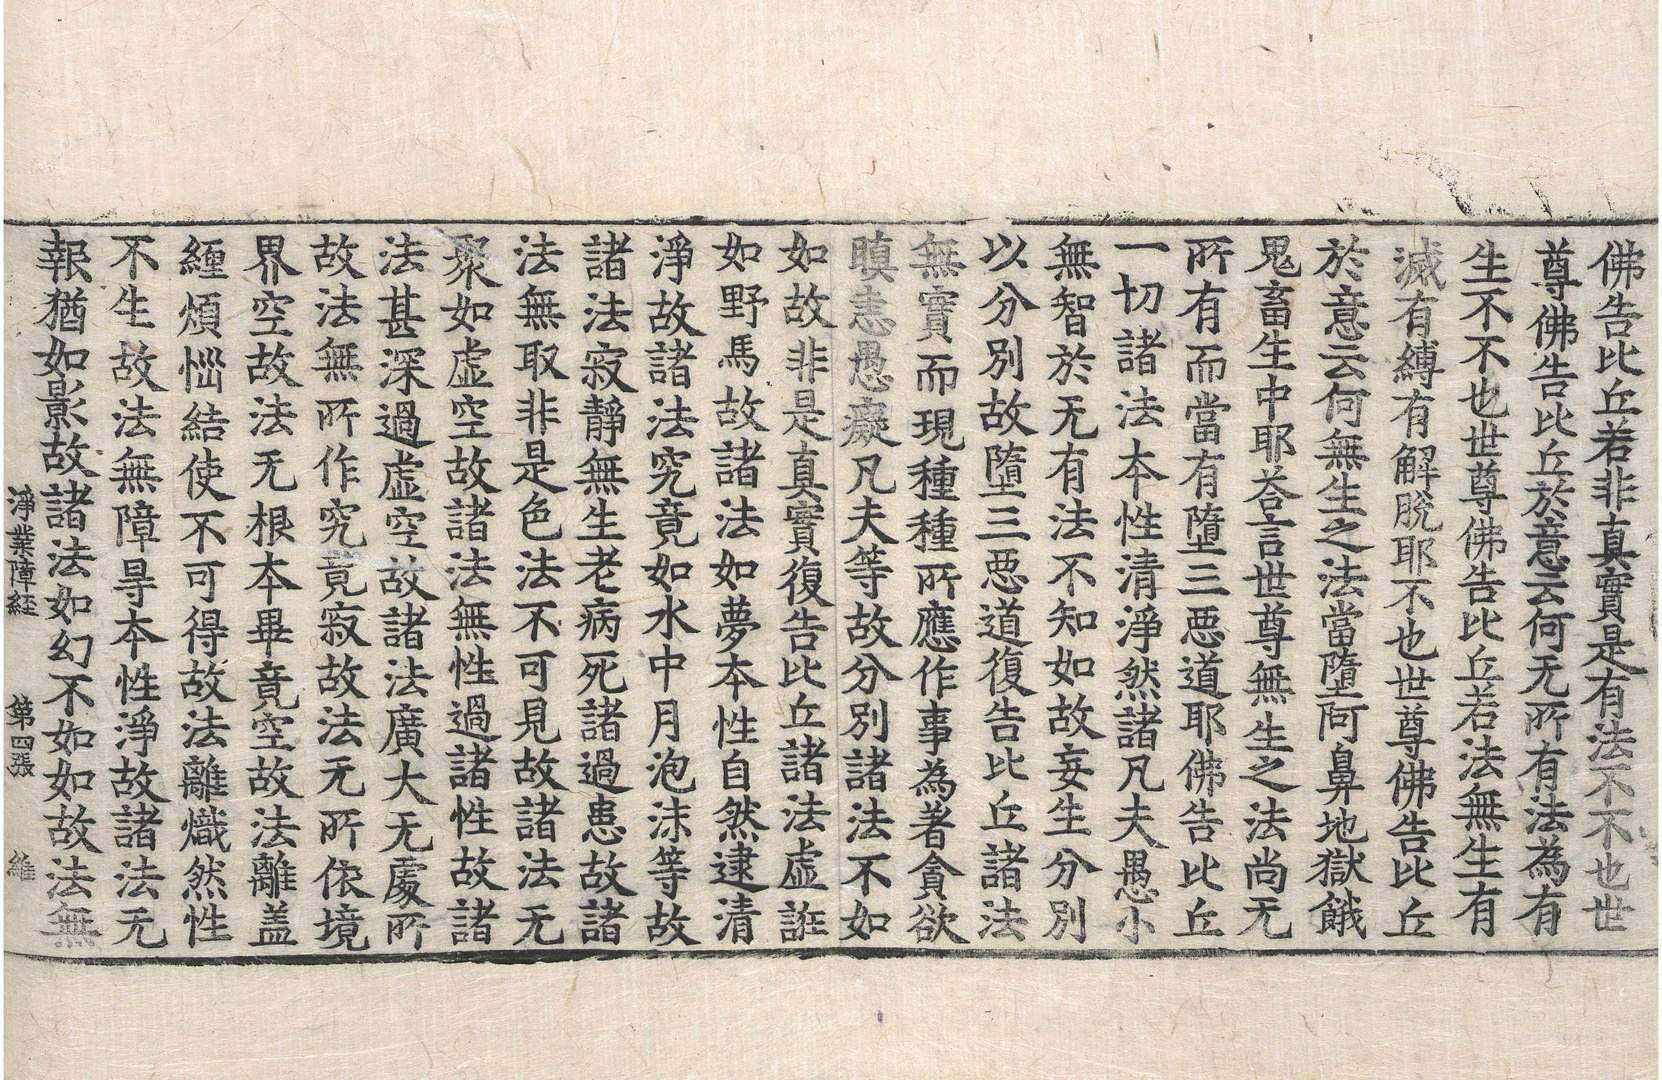 佛告比丘若非真實是有法不不也世
尊佛告比丘於意云何无所有法為有
生不不也世尊佛告比丘若法無生有
滅有縛有解脫耶不也世尊佛告比丘
於意云何無生之法當墮阿鼻地獄餓
鬼畜生中耶荅言世尊無生之法尚无
所有而當有墮三惡道耶佛告比丘
一切諸法本性清淨然諸凡夫愚小
無智於无有法不知如故妄生分別
以分別故墮三惡道復告比丘諸法
無實而現種種所應作事為著貪欲
瞋恚愚癡凡夫等故分別諸法不如
如故非是真實復告比丘諸法虛誑
如野馬故諸法如夢本性自然逮清
淨故諸法究竟如水中月泡沫等故
諸法寂靜無生老病死諸過患故諸
法無取非是色法不可見故諸法无
聚如虛空故諸法無性過諸性故諸
法甚深過虛空故諸法廣大无處所
故法無所作究竟寂故法无所依境
界空故法无根本畢竟空故法離蓋
纏煩惱結使不可得故法離熾然性
不生故法無障㝵本性淨故諸法无
報猶如影故諸法如幻不如如故法無
淨業障經 第四張 維